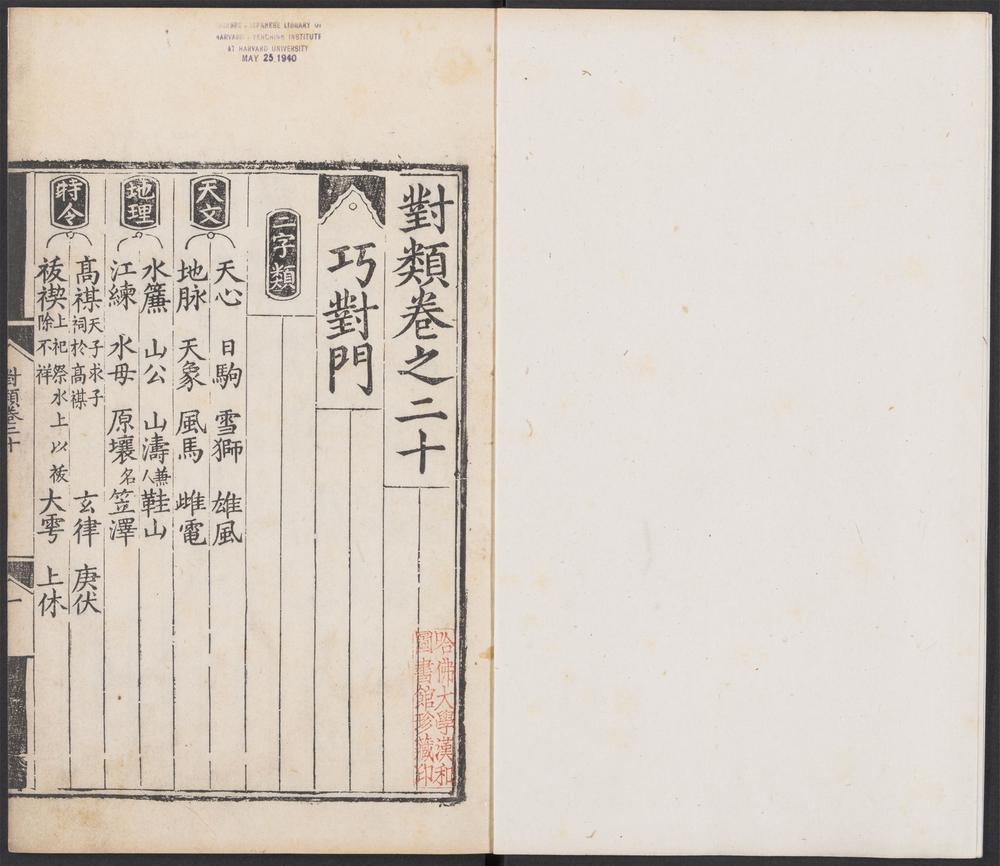 JAPANESE LIBRARY
HARVARD-YENCHING INSTITUTE
AT HARVARD UNIVERSITY
MAY 25 1940
對類卷之二十
巧對門
二字類
天文
天心 日駒 雪獅 雄風
地脉 天象 風馬 雌電
地理
水簾 山公 山濤兼人名 鞋山
江練 水母 原壤 笠澤
時令
高禖天子求子祠於高禖 玄律 庚伏
祓禊上祀祭水上以祓除不祥 大雩 上休
對類卷二十
一
哈佛大學漢和
圖書館珍藏印